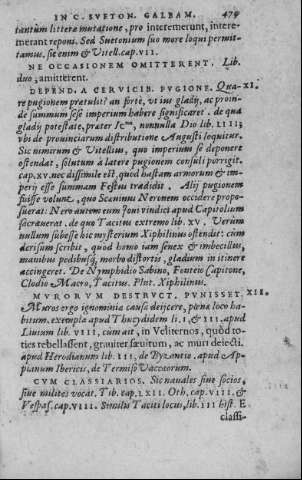 IN C. SVETON. GALBAM. 479
tantùm littera mutatione, pro interemerunt, intere-
merant reponi. Sed Suetonium suo more loqui permit-
tamus. sic enim & Vitell. cap. VII.
NE OCCASIONEM OMITTERENT. Lib.
duo; amitterent.
DEPEND. A CERVICIB. PVGIONE. Qua- XI.
re pugionem prætulit? an fortè, vt ius gladij, ac proin-
de summum sese imperium habere significaret. de qua
gladij potestate, præter Ictos, nonnulla Dio lib. LIII;
vbi de prouinciarum distributione Augusti loquitur.
Sic nimirum & Vitellius, quo imperium se deponere
ostendat, solutum à latere pugionem consuli porrigit.
cap. XV. nec dissimile est, quòd hastam armorum & im-
perij esse summam Festus tradidit. Alij pugionem
fuisse volunt, quo Scauinus Neronem occidere propo-
suerat: Nero autem eum Ioui vindici apud Capitolium
sacrauerat. de quo Tacitus extremo lib. XV. Verùm
nullum subesse hic mysterium Xiphilinus ostendit: cùm
derisum scribit, quòd homo iam senex & imbecillus,
manibus pedibusq; morbo distortis, gladium in itinere
accingeret. De Nymphidio Sabino, Fonteio Capitone,
Clodio Macro, Tacitus. Plut. Xiphilinus.
MVRORVM DESTRVCT. PVNISSET. XII.
Muros ergo ignominia causâ deijcere, pœna loco ha-
bitum. exempla apud Thucydidem li. I, & III. apud
Liuium lib. VIII. cum ait, in Veliternos, quòd to-
ties rebellassent, grauiter sæuitum, ac muri deiecti.
apud Herodianum lib. III, de Byzantio. apud Ap-
pianum Ibericis, de Termiso Vaccæorum.
CVM CLASSIARIOS. Sic nauales siue socios,
siue milites vocat. Tib. cap. LXII. Oth. cap. VIII. &
Vespas. cap. VIII. Similis Taciti locus, lib. III hist. E
classi-